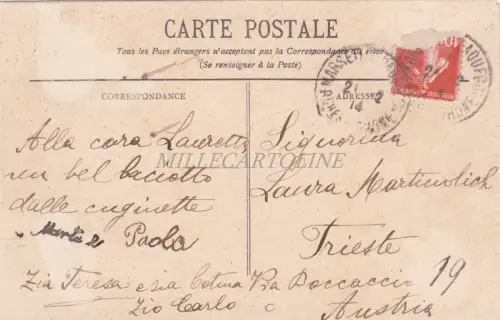 CARTE POSTALE
Tous les Pays étrangers n'acceptent pas la Correspondance au recto
(Se renseigner à la Poste)
CORRESPONDANCE
ADRESSE
MARSEILLE
21 2
14
MILLECARTOLINE
Alla cara Lauretta
un bel baciotto
dalle cuginette
Marta e Paola
Zia Teresa e zia
Zio Carlo
Signorina
Laura Martinolich
Trieste
Via Boccaccio 19
Austria